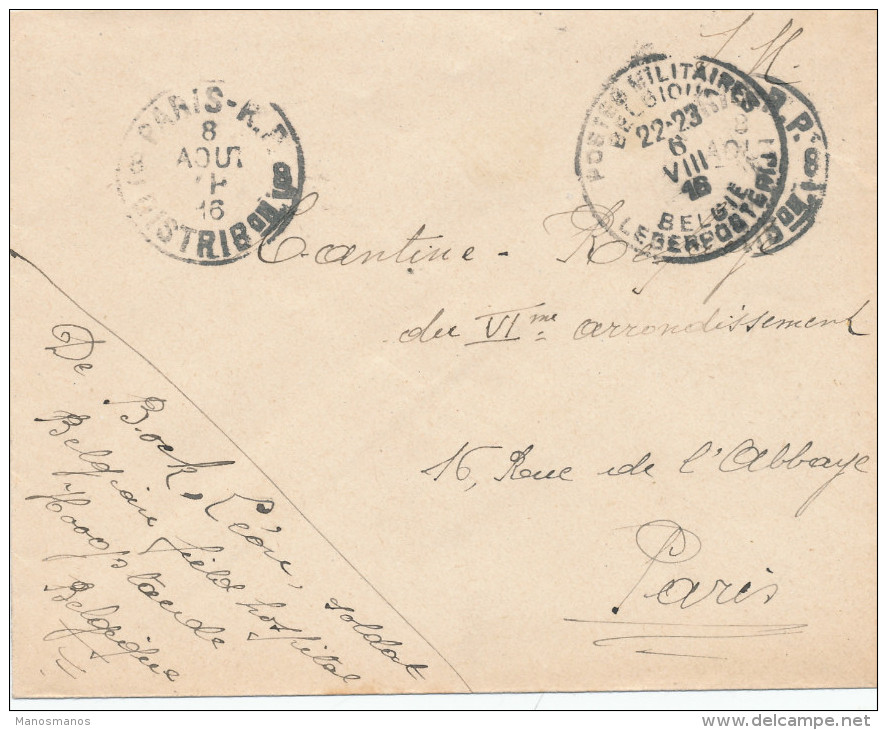 S.M.
PARIS-R.P.
8
AOUT
16
DISTRIBon
POSTES MILITAIRES
BELGIQUE
22-23
6
VIII
16
BELGIE
LEGERPOSTERIJ
R.P.
8
AOUT
Cantine -
du VIme arrondissement
16, Rue de l'Abbaye
Paris
De Bock, Léon, soldat
Belgian field hospital
Hoogstaede
Belgique
Manosmanos
www.delcampe.net